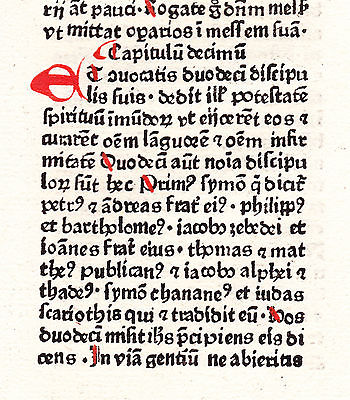 rij aūt pauci. Rogate g̊ dn̄m messꝭ
vt mittat oꝑarios ī messem suā.
Capitulū decimū
Et ꝯuocatis duodecī discipu
lis suis. dedit ill̓ potestatē
spirituū īmūdoꝝ vt eijcerēt eos ⁊
curarēt oēm lāguorē ⁊ oēm infir
mitatē Duodecī aūt noīa discipu
loꝝ sūt hec Primꝰ symō q̄ dicit̄
petrꝰ ⁊ ādreas frat̄ eiꝰ. philippꝰ
et bartholomeꝰ. iacobꝰ zebedei et
ioānes frat̄ eius. thomas ⁊ mat
theꝰ publicanꝰ ⁊ iacobꝰ alphei ⁊
thadeꝰ. symō chananeꝰ et iudas
scariothis qui ⁊ tradidit eū. Hos
duodecī misit ih̄s p̄cipiens eis di
cens. In viā gentiū ne abieritis